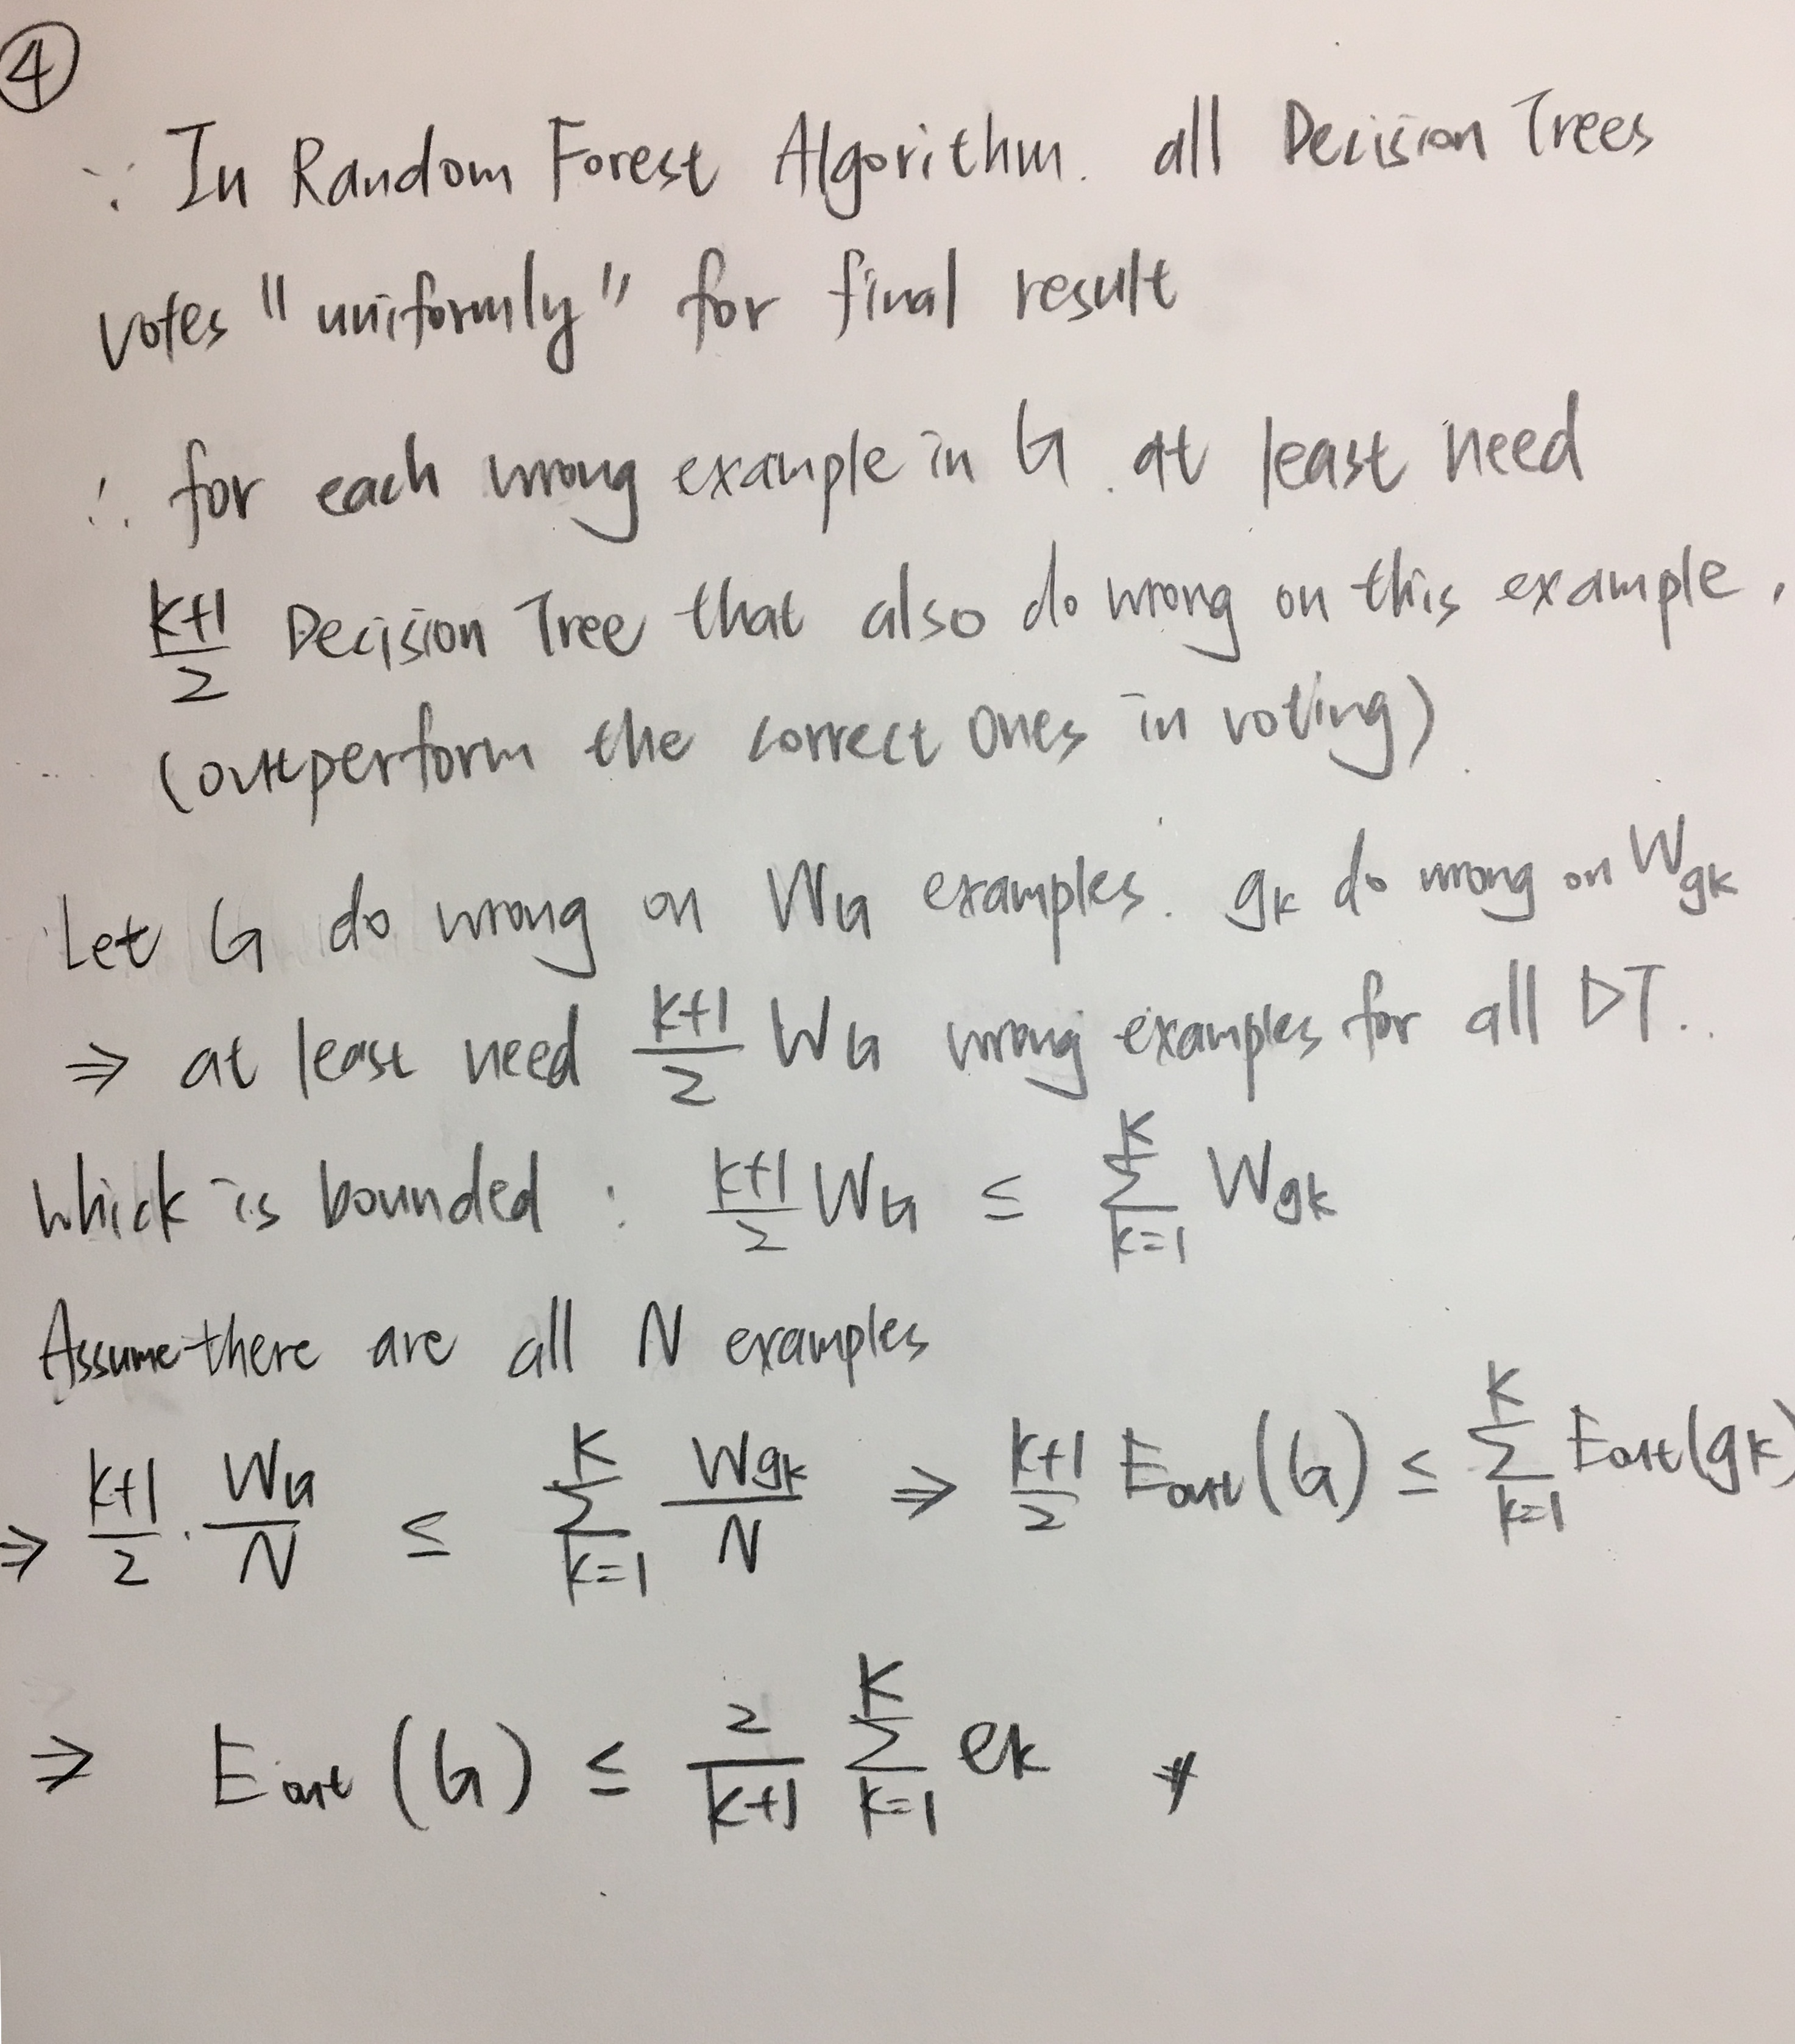 ④
∵ In Random Forest Algorithm. all Decision Trees
votes "uniformly" for final result
∴ for each wrong example in G. at least need
K+1/2 Decision Tree that also do wrong on this example.
(outperform the correct ones in voting)
Let G do wrong on W_G examples. g_k do wrong on W_gk
⇒ at least need K+1/2 W_G wrong examples for all DT..
which is bounded : K+1/2 W_G ≤ Σ_{k=1}^{K} W_gk
Assume there are all N examples
⇒ K+1/2 · W_G/N ≤ Σ_{k=1}^{K} W_gk/N ⇒ K+1/2 Eout(G) ≤ Σ_{k=1}^{K} Eout(g_k)
⇒ Eout(G) ≤ 2/K+1 Σ_{k=1}^{K} e_k #